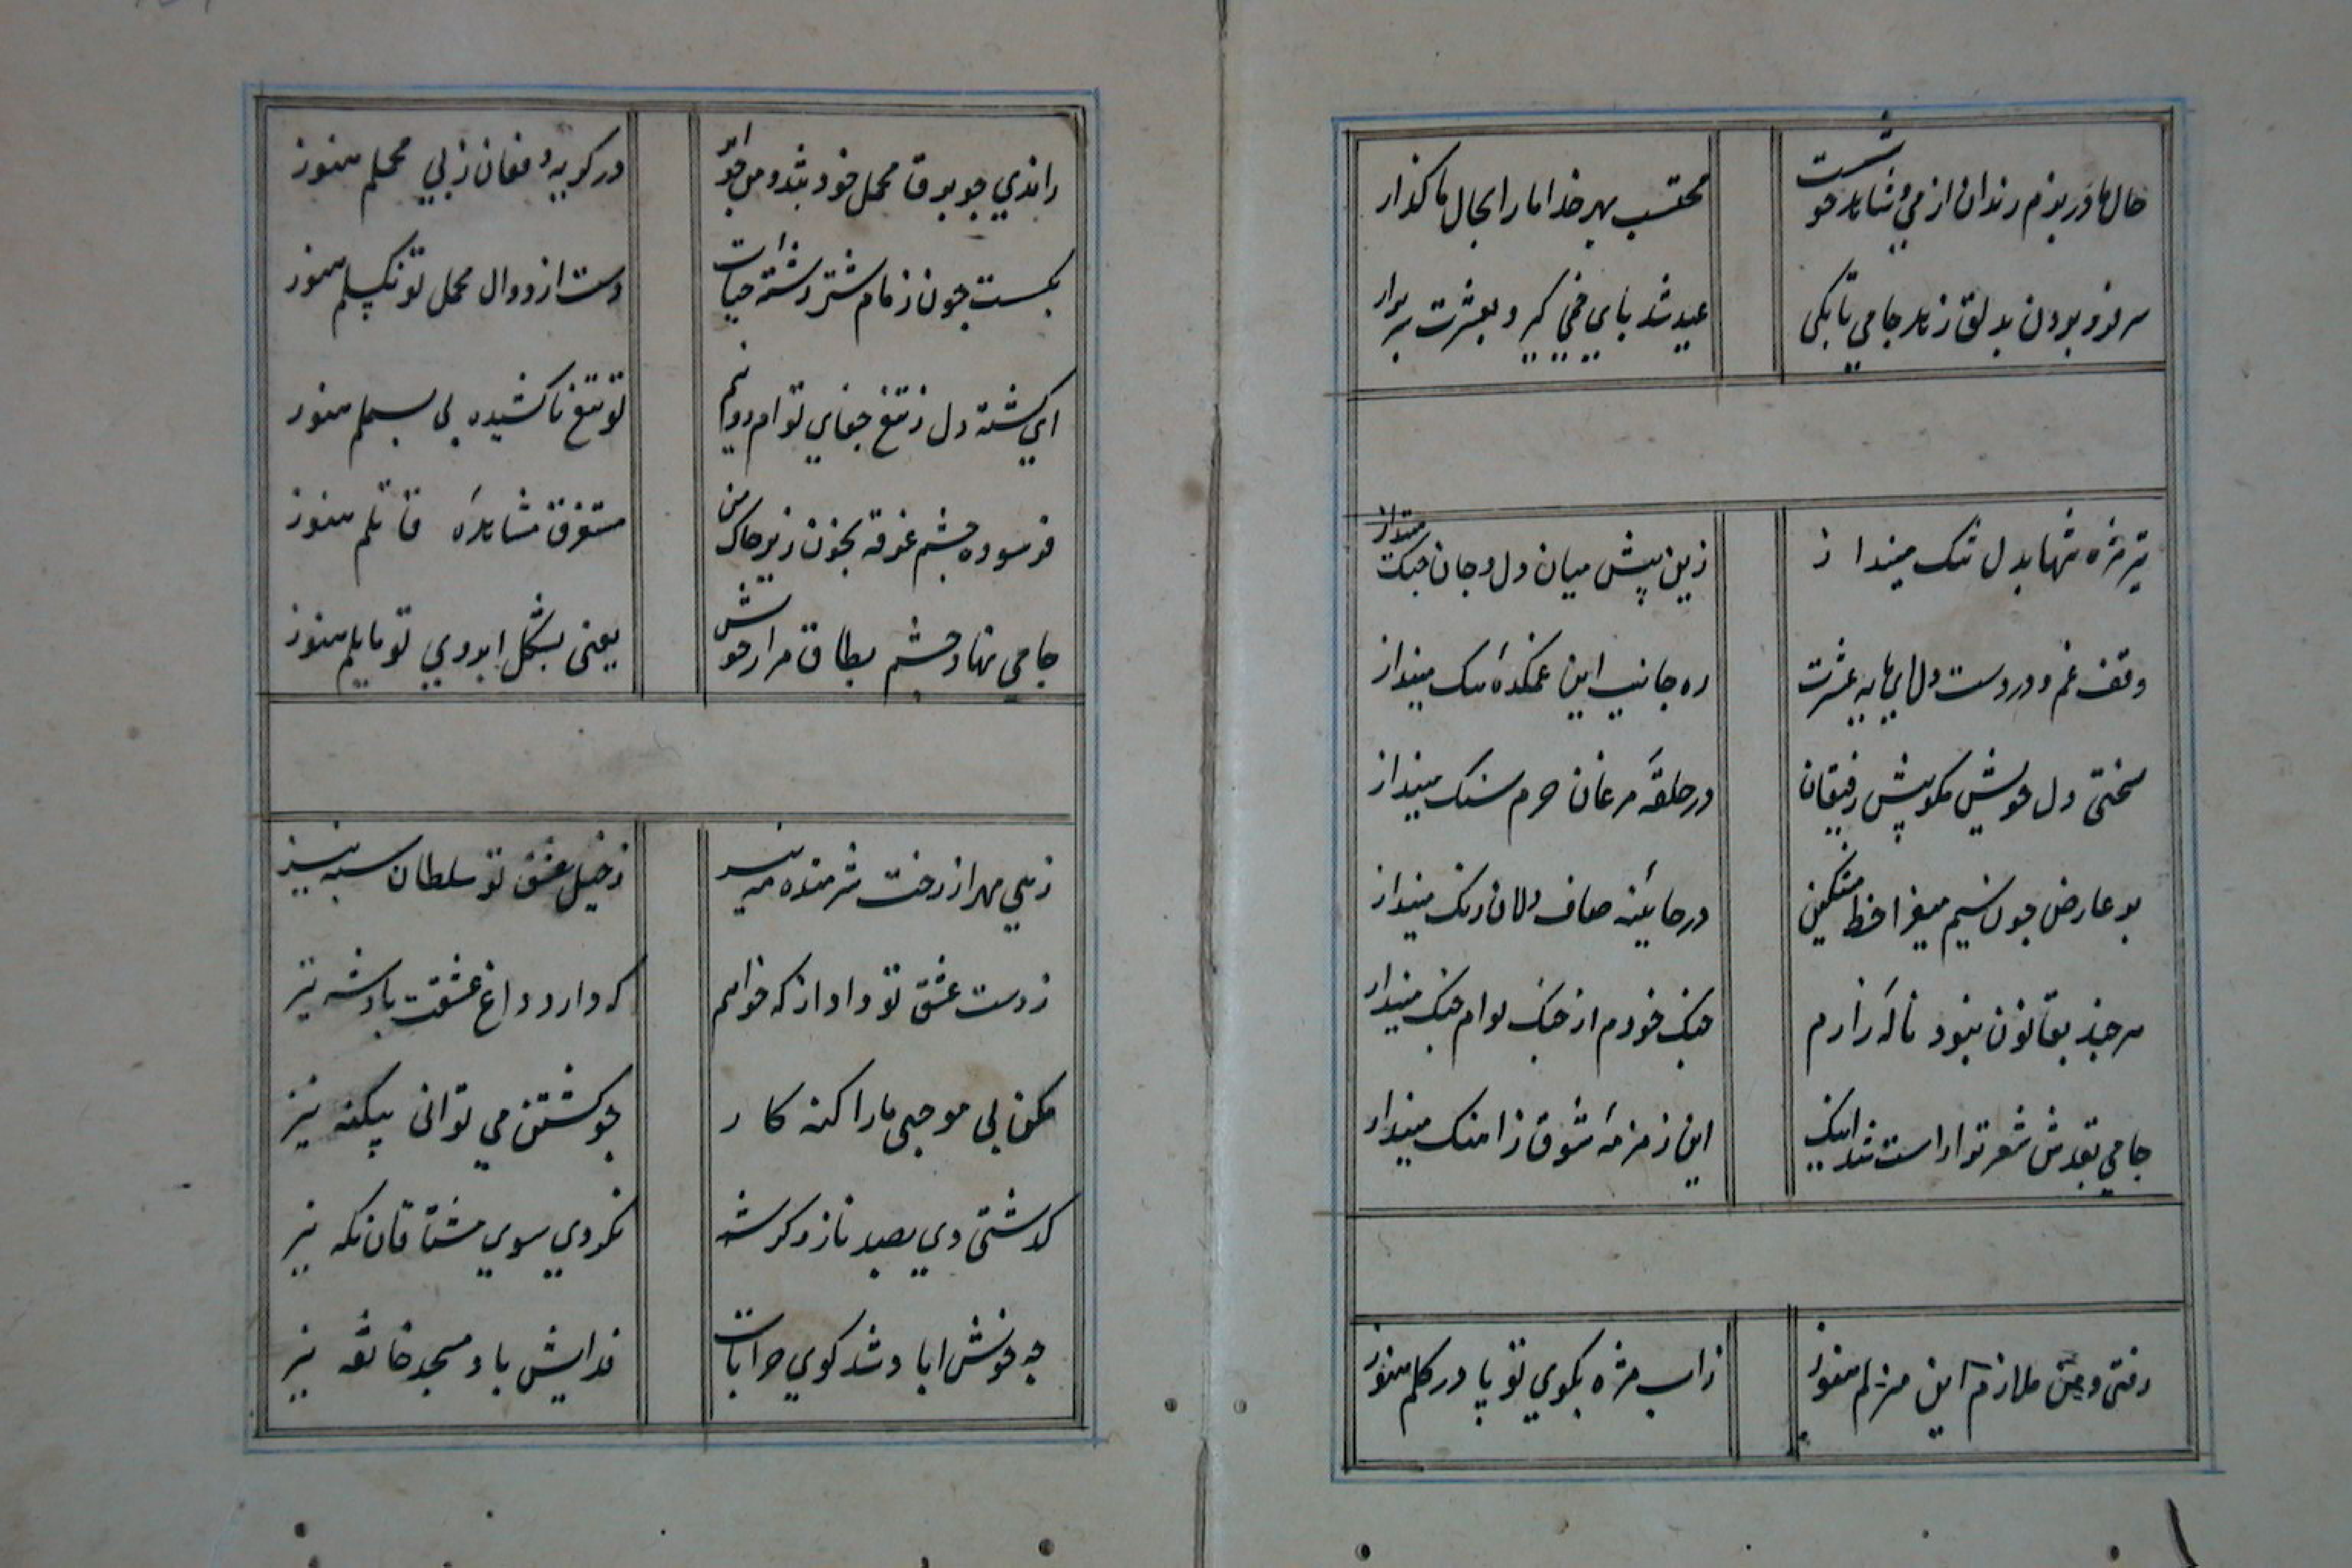 حال ما در بزم رندان از می و شاهد خوشست محتسب بهر خدا ما را بحال ما کذار
سر فرو بردن بدلق زهد جامی تا بکی عید شد پای خمی کیر و بعشرت سر برار
تیر مژه تنها بدل تنک مینداز زین پیش میان دل و جان جنک مینداز
وقف غم و دردست دل ای مایه عشرت ره جانب این غمکدهٔ تنک مینداز
سختی دل خویش مکو پیش رفیقان در حلقهٔ مرغان حرم سنک مینداز
بر عارض چون سیم میفزا خط مشکین در حائینه صاف دلان رنک مینداز
هر چند بقانون نبود نالهٔ زارم چنک خودم از چنک توام چنک مینداز
جامی بقدش شعر تو اراست شد اینک این زمزمهٔ شوق زاهنک مینداز
رفتی و من ملازم این منزلم هنوز زاب مژه بکوی تو پا در کلم هنوز
راندی چو برق محمل خود تند و من چو ابر در کریه و فغان ز پی محملم هنوز
بکسست چون زمام شتر رشته حیات دست از دوال محمل تو نکسلم هنوز
ای کشته دل ز تیغ جفای تو ام دو نیم تو تیغ ناکشیده پی بسملم هنوز
فرسوده چشم غرقه بخون زیر خاک من مستغرق مشاهدهٔ قاتلم هنوز
جامی نهاد چشم بطاق مزار خویش یعنی بشکل ابروی تو مایلم هنوز
زهی مهر از رخت شرمنده مه نیز ز خیل عشق تو سلطان سپه نیز
ز دست عشق تو داد از که خواهم که دارد داغ عشقت پادشه نیز
مکن بی موجبی ما را کنه کار چو کشتن می توانی بیکنه نیز
کذشتی دی بصد ناز و کرشمه نکردی سوی مشتاقان نکه نیز
چه خوش اباد شد کوی خرابات فدایش باد مسجد خانقه نیز